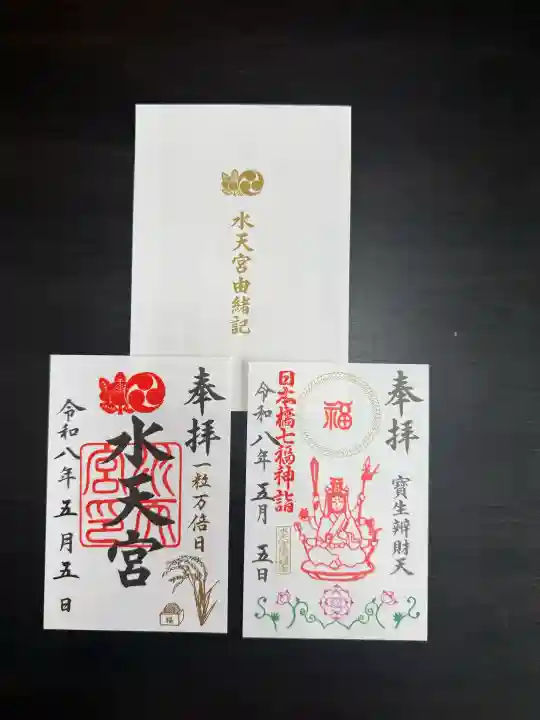 水天宮由緒記
奉拝
一粒万倍日
水天宮
令和八年五月五日
福
奉拝
寶生辨財天
福
日本橋七福神詣
令和八年五月五日